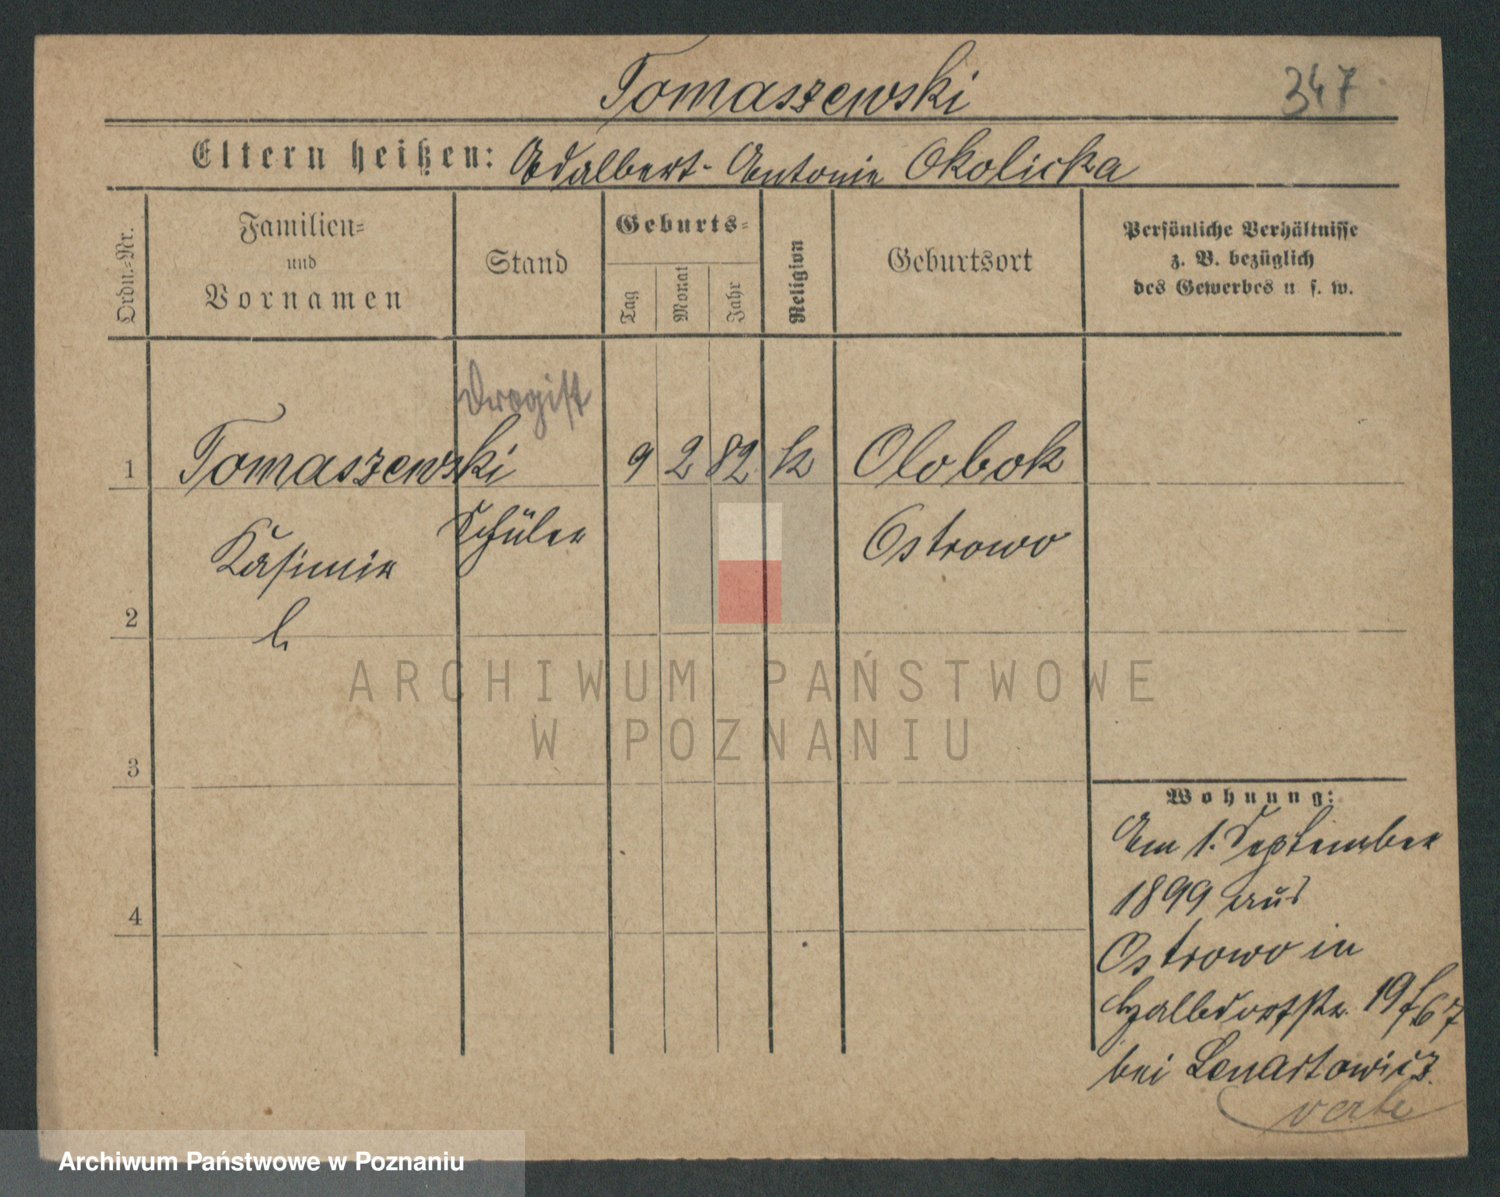 Tomaszewski
347
Eltern heißen: Adalbert - Antonie Okolicka
Ordn.-Nr.
Familien-
und
Vornamen
Stand
Geburts-
Tag
Monat
Jahr
Religion
Geburtsort
Persönliche Verhältnisse
z. B. bezüglich
des Gewerbes u. s. w.
Drogist
1 Tomaszewski 9 2 82 k Olobok
Kasimir Schüler Ostrowo
2 l.
3
4
Wohnung:
Am 1. September
1899 aus
Ostrowo in
Halbdorfstr. 19/67
bei Lenartowicz.
ARCHIWUM PAŃSTWOWE
W POZNANIU
Archiwum Państwowe w Poznaniu